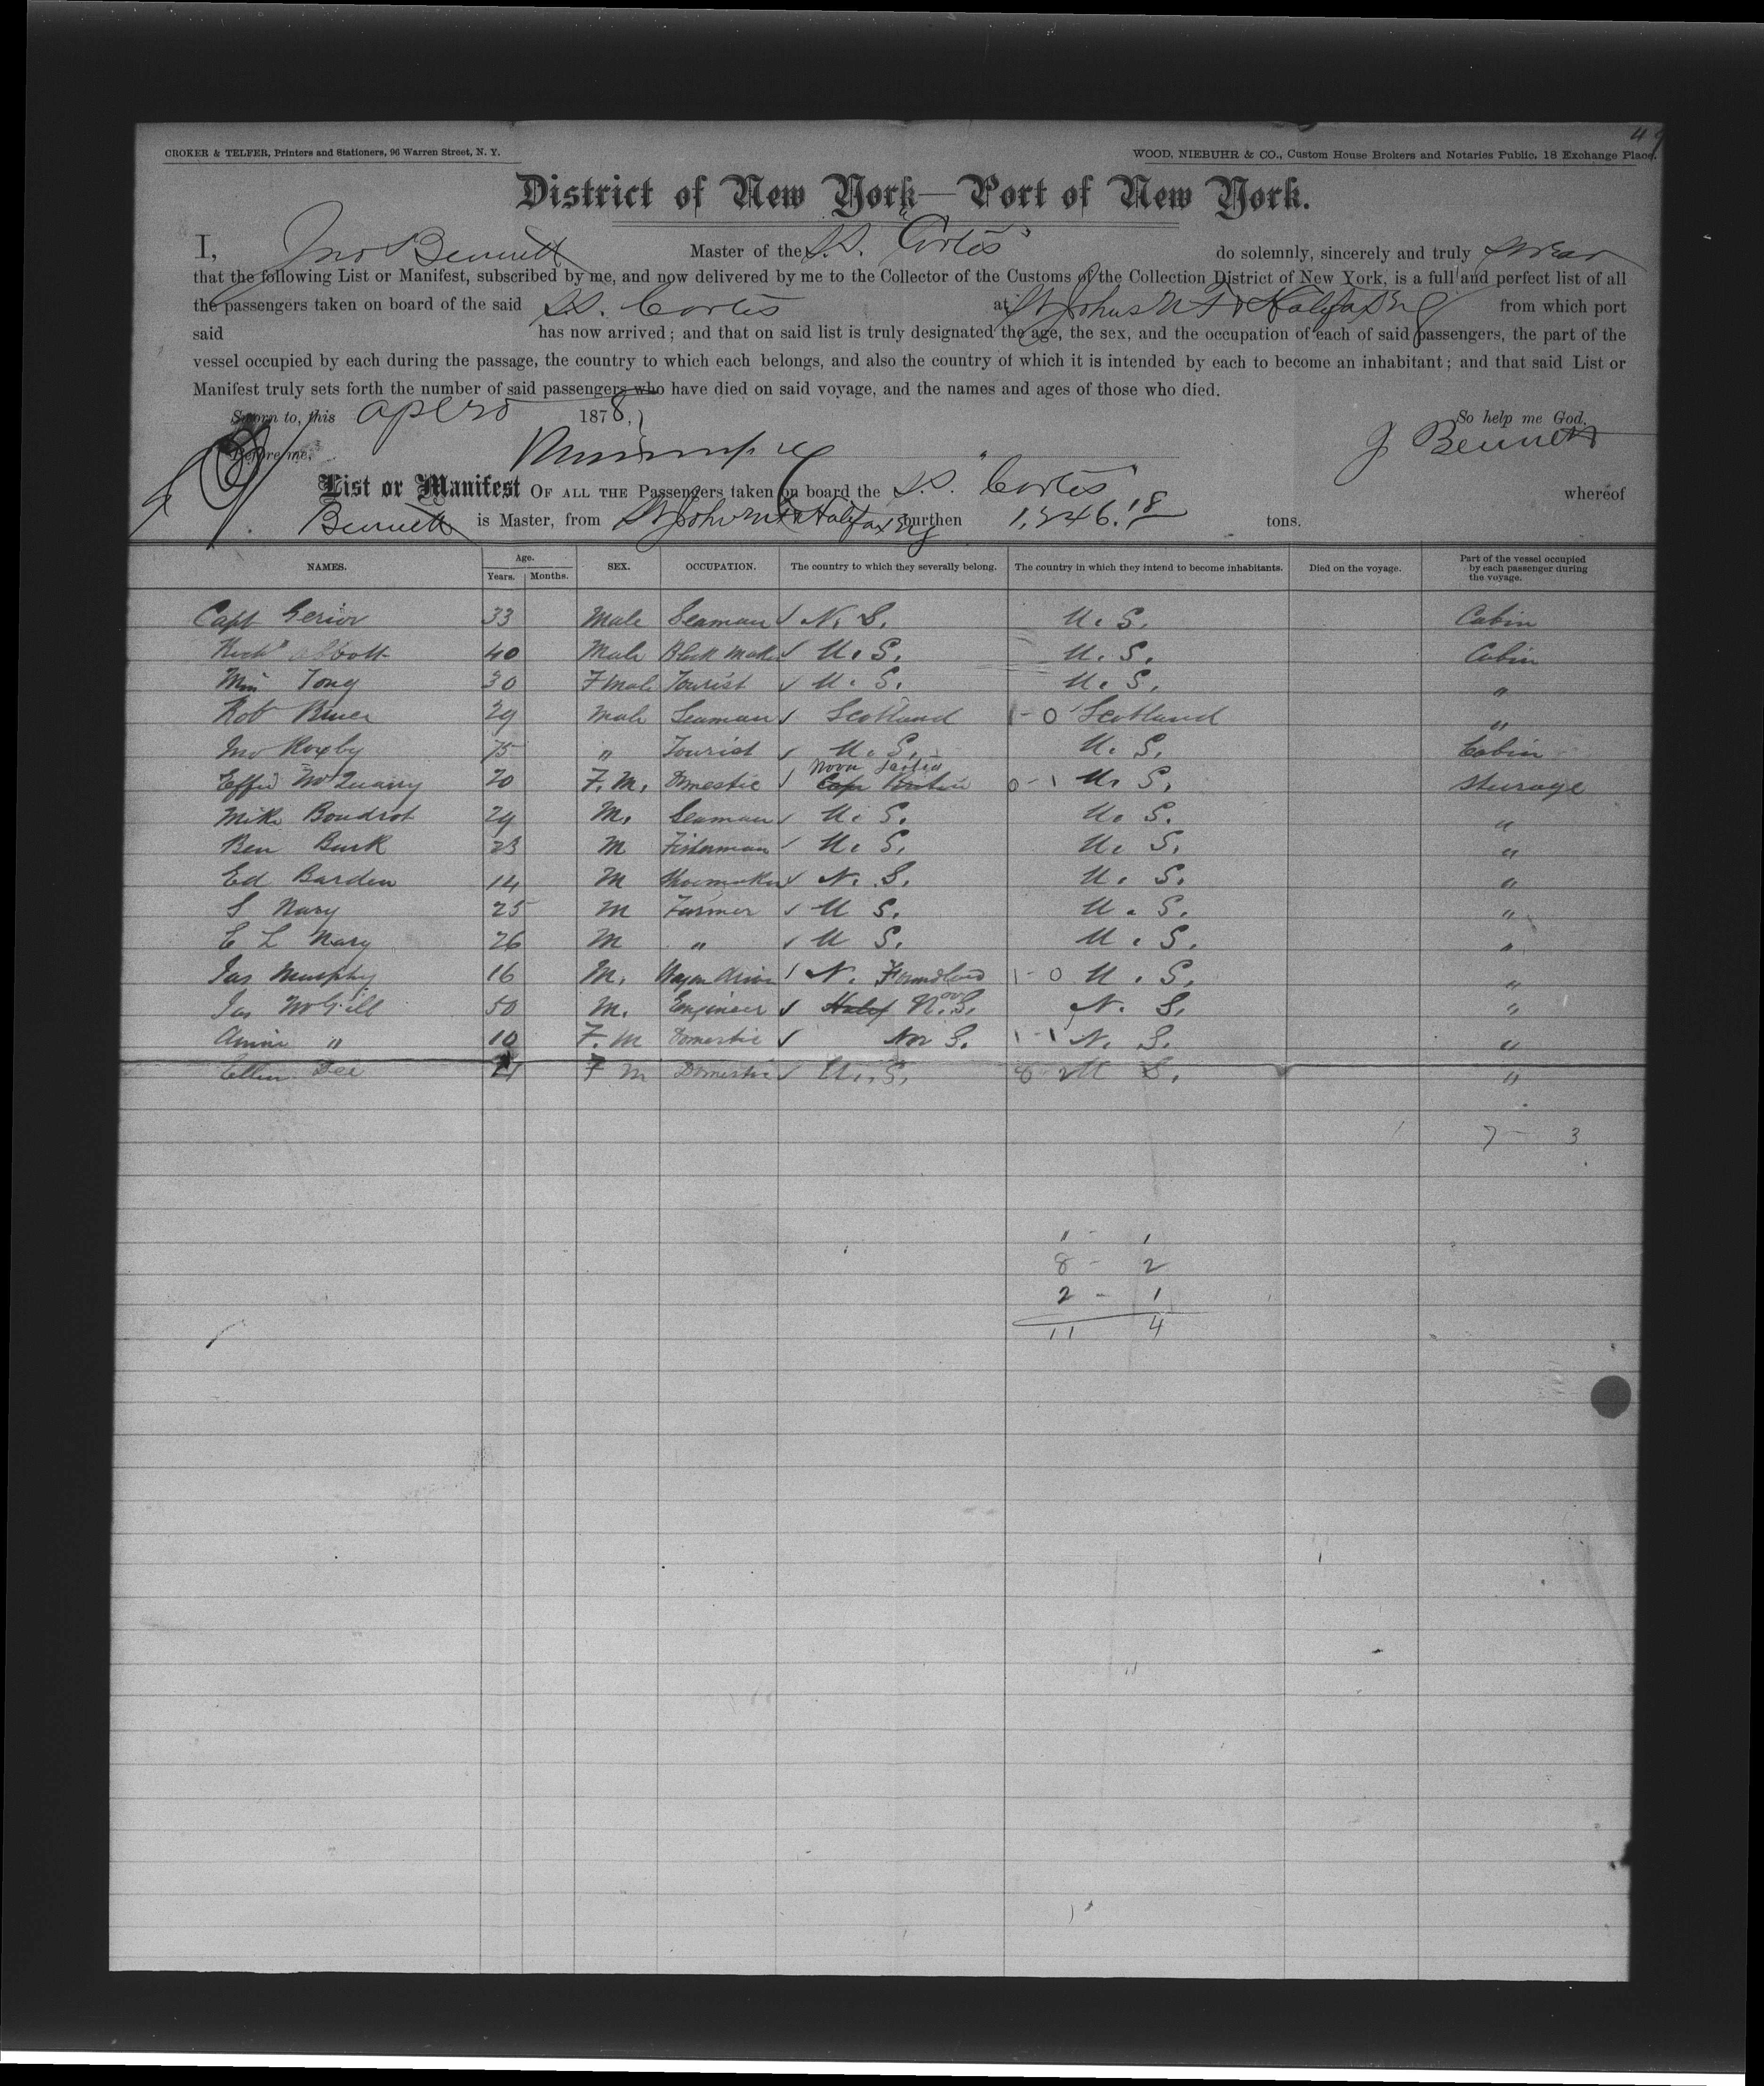 49
CROKER & TELFER, Printers and Stationers, 96 Warren Street, N. Y.
WOOD, NIEBUHR & CO., Custom House Brokers and Notaries Public, 18 Exchange Place.
District of New York—Port of New York.
I, Jno Bennett Master of the S.S. "Cortes" do solemnly, sincerely and truly swear
that the following List or Manifest, subscribed by me, and now delivered by me to the Collector of the Customs of the Collection District of New York, is a full and perfect list of all
the passengers taken on board of the said S.S. Cortes at St Johns N F & Halifax from which port
said has now arrived; and that on said list is truly designated the age, the sex, and the occupation of each of said passengers, the part of the
vessel occupied by each during the passage, the country to which each belongs, and also the country of which it is intended by each to become an inhabitant; and that said List or
Manifest truly sets forth the number of said passengers who have died on said voyage, and the names and ages of those who died.
Sworn to, this 1878, So help me God.
Before me, J Bennett
List or Manifest OF ALL THE Passengers taken on board the S.S. "Cortes" whereof
Bennett is Master, from St Johns Halifax burthen 1,246.18 tons.
NAMES. Age. Years. Months. SEX. OCCUPATION. The country to which they severally belong. The country in which they intend to become inhabitants. Died on the voyage. Part of the vessel occupied by each passenger during the voyage.
Capt Gerior 33 Male Seaman N. S. U. S. Cabin
Abbott 40 Male Block Maker U. S. U. S. Cabin
Tong 30 Fmale Tourist U. S. U. S. "
Rob Bruce 29 Male Seaman Scotland 1-0 Scotland "
Jno Roxby 75 " Tourist U. S. U. S. Cabin
Effie McQuarry 20 F. M. Domestic Nova Scotia 0-1 U. S. Sturage
Mike Boudrot 29 M. Seaman U. S. U. S. "
Ben Burk 23 M Fisherman U. S. U. S. "
Ed Barden 14 M Shoemaker N. S. U. S. "
S Nary 25 M Farmer U S. U. S. "
E L Nary 26 M " U S. U. S. "
Jas Murphy 16 M. N. Foundland 1-0 U. S. "
Jas McGill 50 M. Engineer N. S. N. S. "
Annie " 10 F. M Domestic Nov S. 1-1 N. S. "
Ellen Dee 21 F M Domestic U. S. 8 2 U S. "
7 - 3
1 - 1
8 - 2
2 - 1
11 4